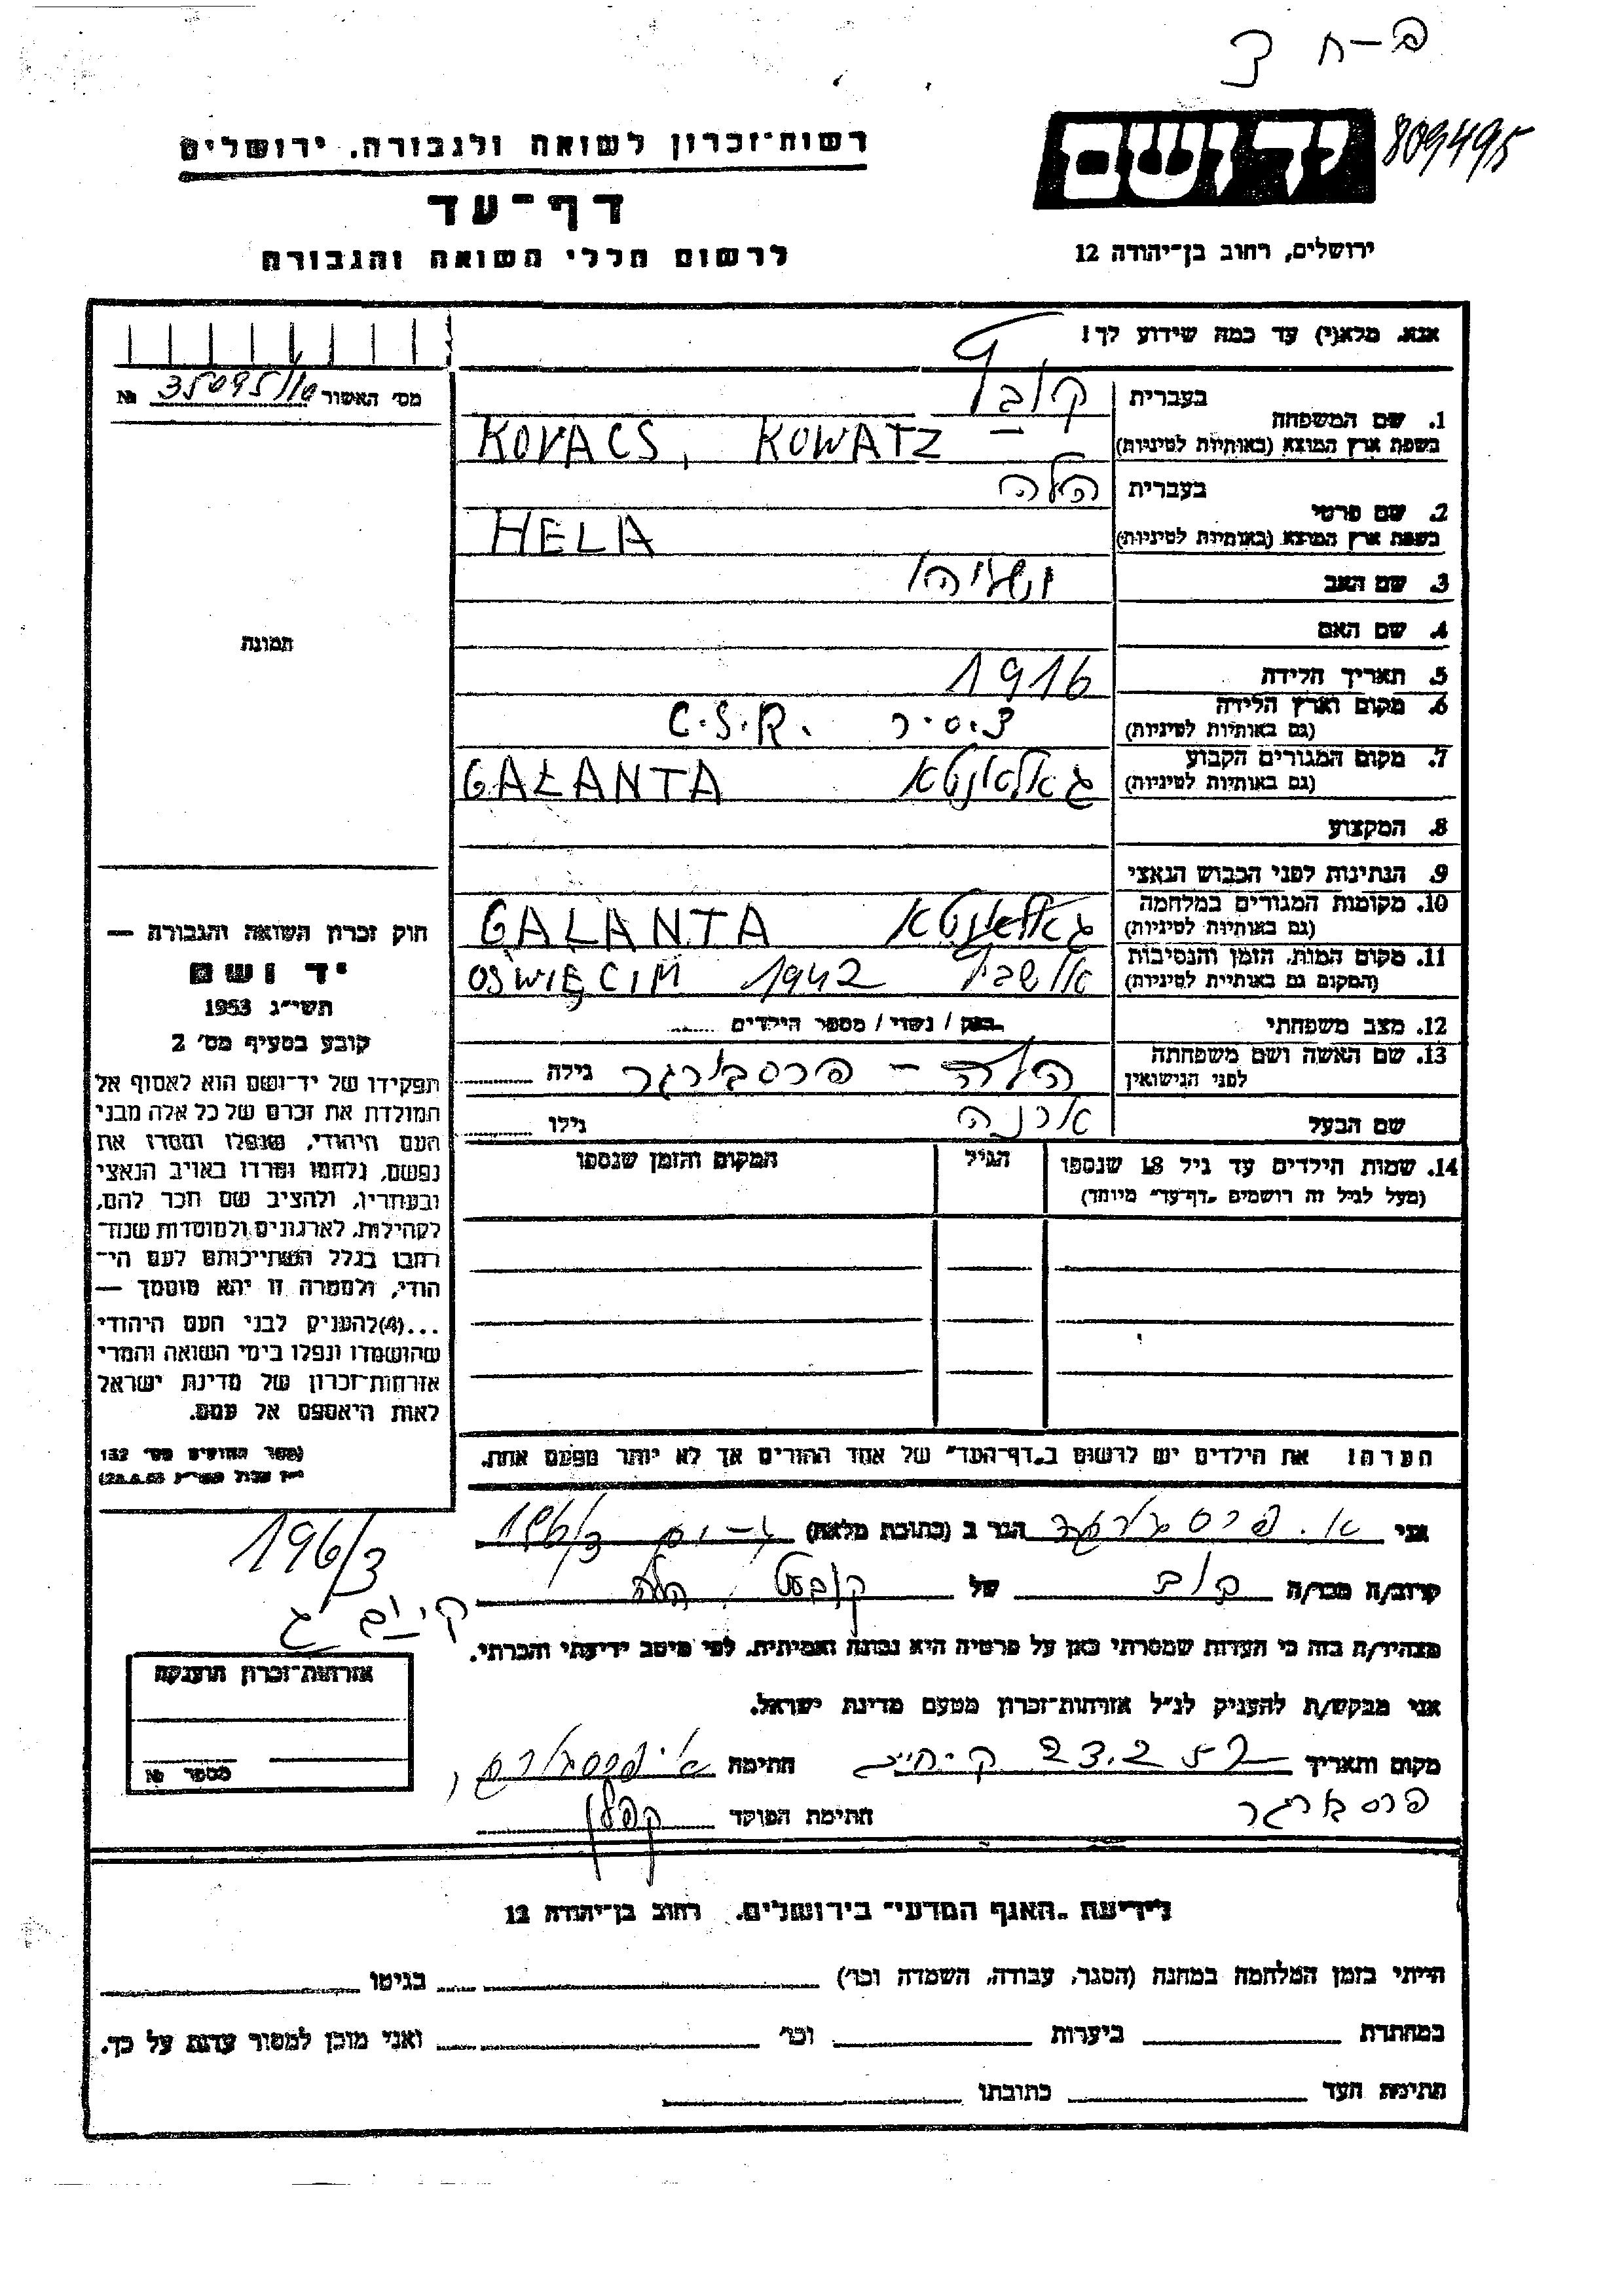 פ-ח צ
809495
יד ושם
ירושלים, רחוב בן־יהודה 12
רשות־זכרון לשואה ולגבורה, ירושלים
דף־עד
לרשום חללי השואה והגבורה
אנא, מלא(י) עד כמה שידוע לך!
מס׳ האשור 35095/10 №
תמונה
1. שם המשפחה
בעברית
בשפת ארץ המוצא (באותיות לטיניות)
KOVACS, KOWATZ
2. שם פרטי
בעברית הלה
בשפת ארץ המוצא (באותיות לטיניות)
HELA
3. שם האב ישעיהו
4. שם האם
5. תאריך הלידה 1916
6. מקום וארץ הלידה
(גם באותיות לטיניות)
צ.ס.ר. C.S.R.
7. מקום המגורים הקבוע
(גם באותיות לטיניות)
גאלאנטא GALANTA
8. המקצוע
9. הנתינות לפני הכבוש הנאצי
10. מקומות המגורים במלחמה
(גם באותיות לטיניות)
גאלאנטא GALANTA
11. מקום המות, הזמן והנסיבות
(המקום גם באותיות לטיניות)
אושביץ 1942 OSWIĘCIM
12. מצב משפחתי רווק / נשוי / מספר הילדים
13. שם האשה ושם משפחתה
לפני הנישואין
הלה - פרסבורגר גילה
שם הבעל גילו
14. שמות הילדים עד גיל 18 שנספו
(מעל לגיל זה רושמים „דף־עד״ מיוחד)
הגיל
המקום והזמן שנספו
הערה! את הילדים יש לרשום ב„דף־העד״ של אחד ההורים אך לא יותר מפעם אחת.
חוק זכרון השואה והגבורה —
יד ושם
תשי״ג 1953
קובע בסעיף מס׳ 2
תפקידו של יד־ושם הוא לאסוף אל
המולדת את זכרם של כל אלה מבני
העם היהודי, שנפלו ומסרו את
נפשם, נלחמו ומרדו באויב הנאצי
ובעוזריו, ולהציב שם וזכר להם,
לקהילות, לארגונים ולמוסדות שנח־
רבו בגלל השתייכותם לעם הי־
הודי, ולמטרה זו יהא מוסמך —
...(4)להעניק לבני העם היהודי
שהושמדו ונפלו בימי השואה והמרי
אזרחות־זכרון של מדינת ישראל
לאות היאספם אל עמם.
(ספר החוקים מס׳ 132
אני א. פרסבורגר הגר ב (כתובת מלאה) 196/3
196/3
קרוב/ה מכר/ה של הלה
מצהיר/ה בזה כי העדות שמסרתי כאן על פרטיה היא נכונה ואמיתית, לפי מיטב ידיעתי והכרתי.
אני מבקש/ת להעניק לנ״ל אזרחות־זכרון מטעם מדינת ישראל.
מקום ותאריך חתימה
פרסבורגר
חתימת הפוקד קפלן
אזרחות־זכרון הוענקה
מספר №
לידיעת „האגף המדעי״ בירושלים, רחוב בן־יהודה 12
הייתי בזמן המלחמה במחנה (הסגר, עבודה, השמדה וכו׳) בגיטו
במחתרת ביערות וכו׳ ואני מוכן למסור עדות על כך.
חתימת העד כתובתו